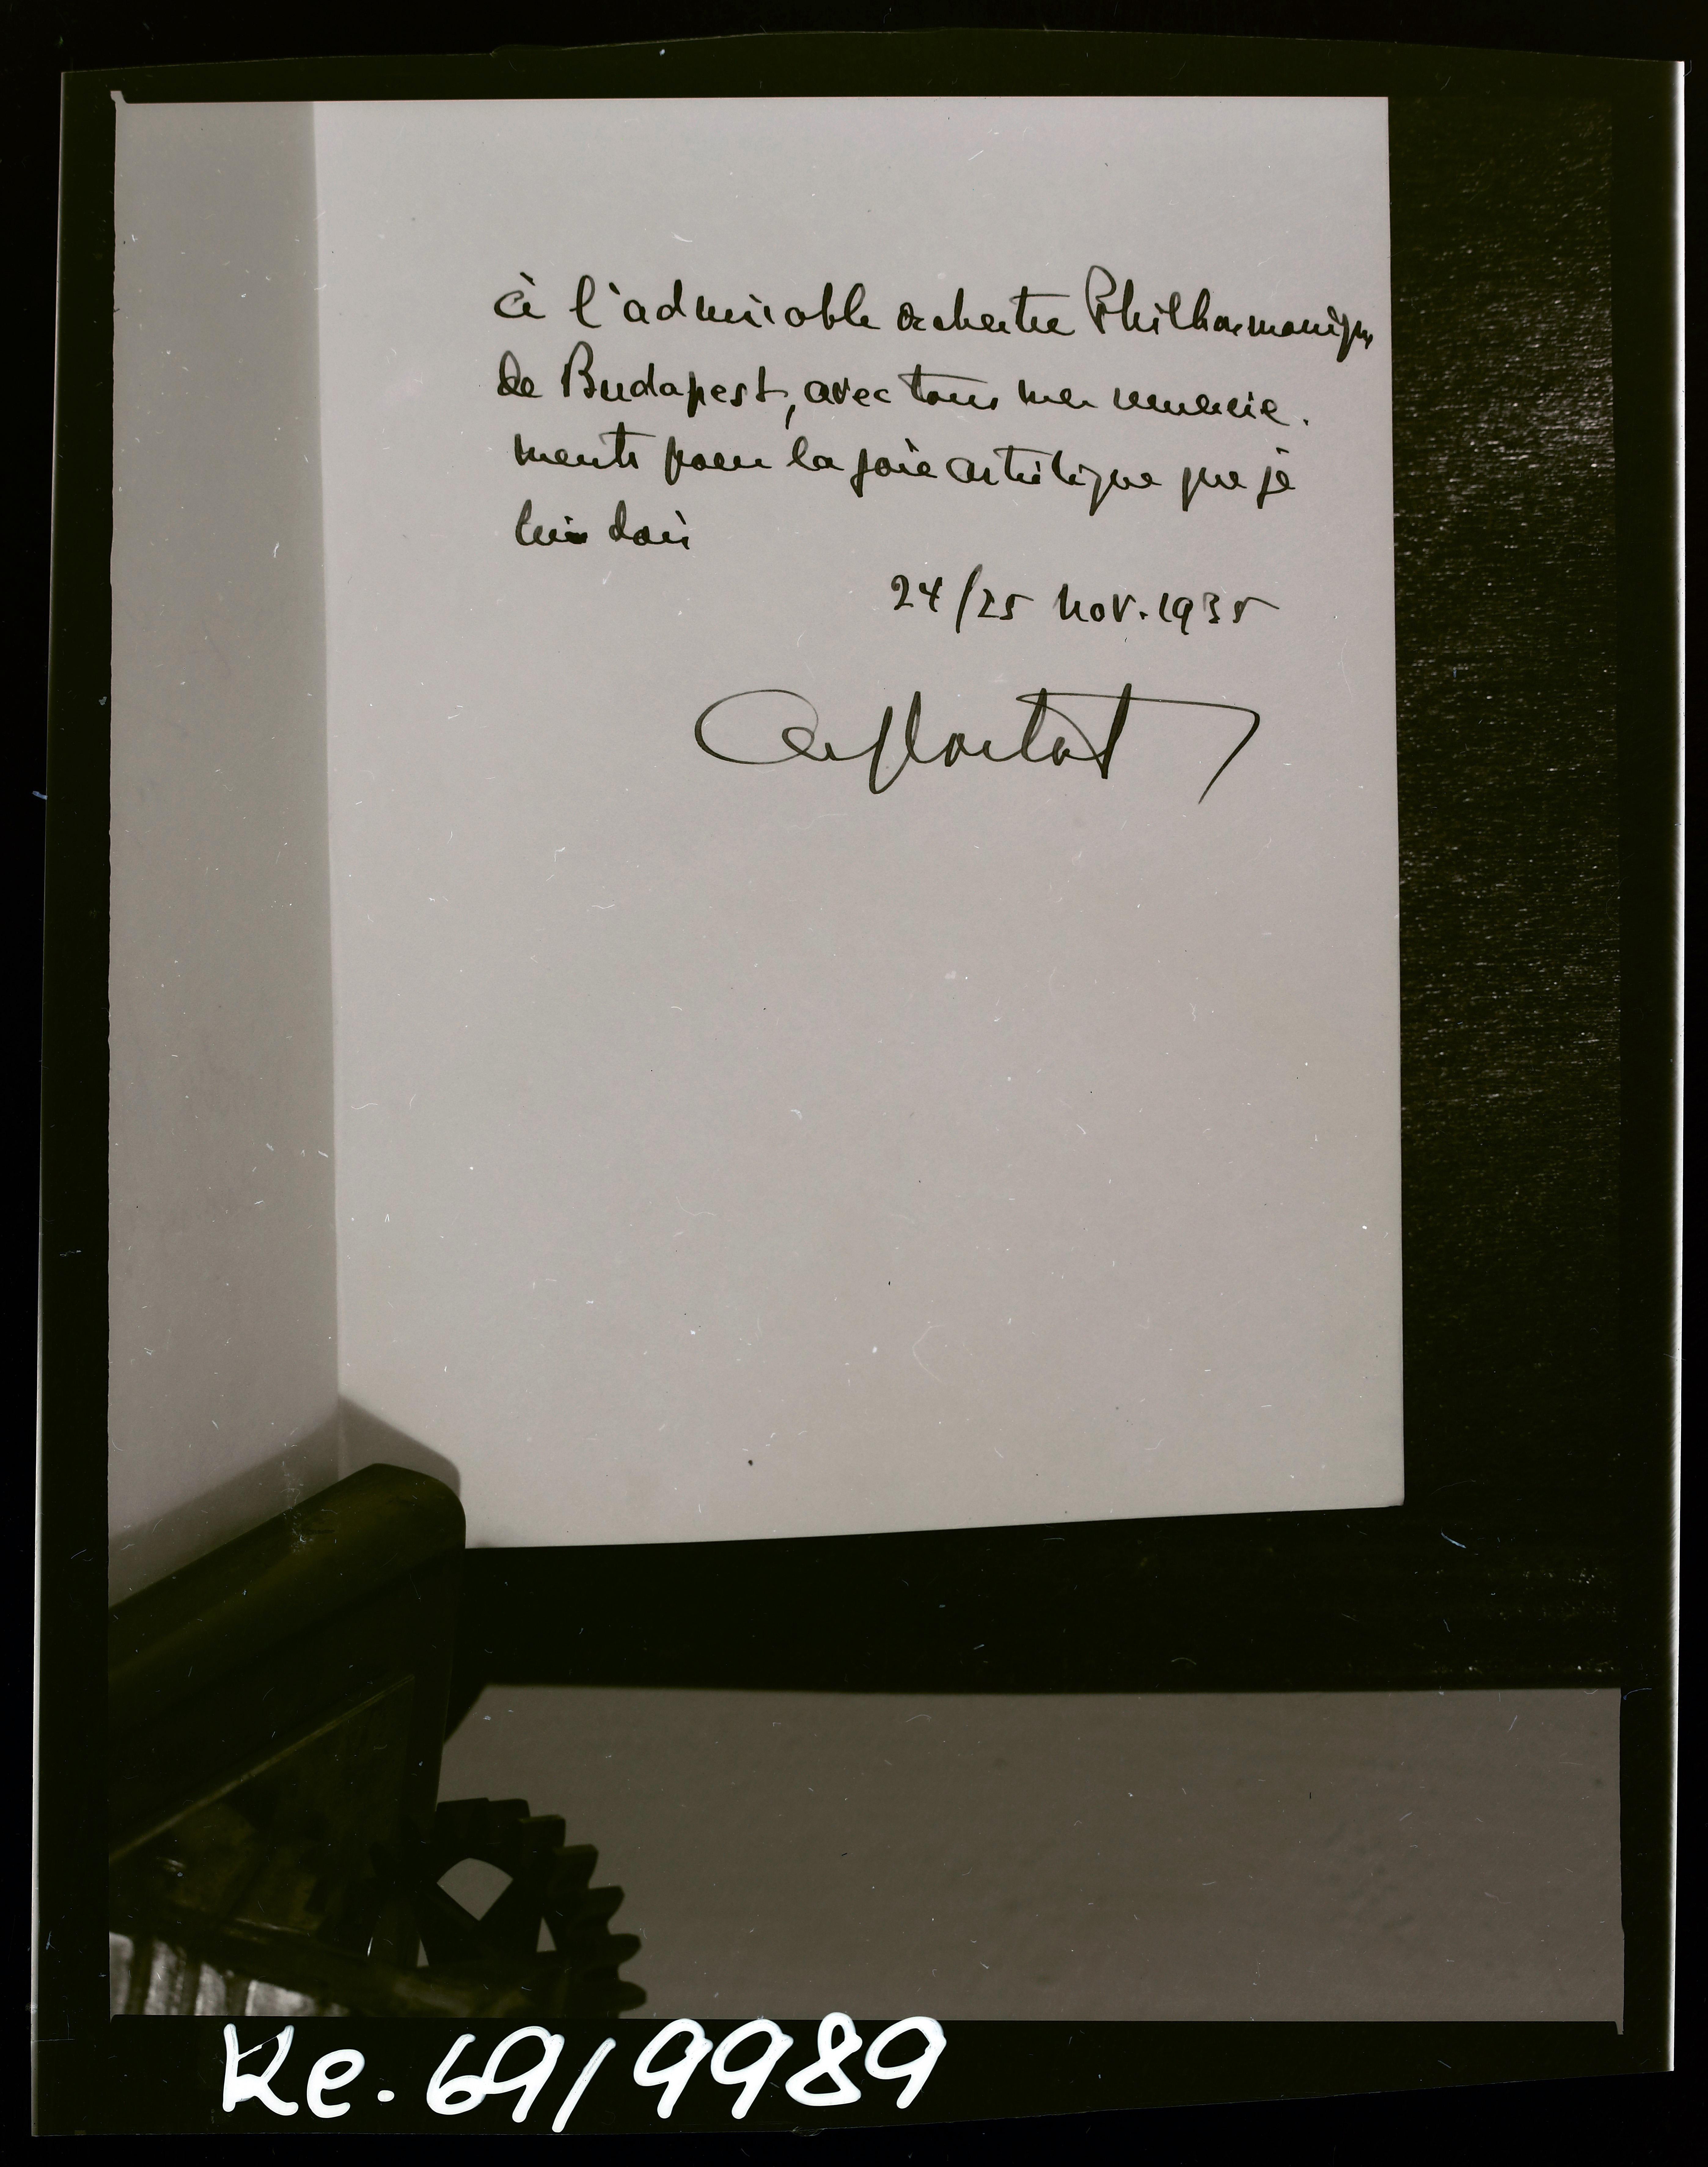 à l'admirable orchestre Philharmonique
de Budapest, avec tous mes remercie-
ments pour la joie artistique que je
lui dois
24/25 nov. 1935
Alf Cortot
Re. 69/9989